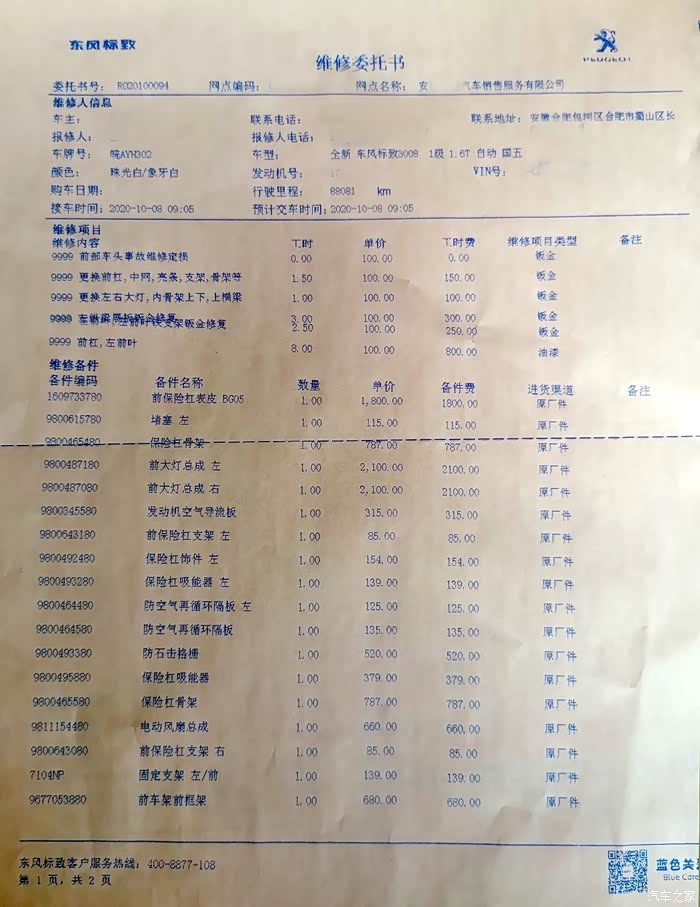 东风标致
PEUGEOT
维修委托书
委托书号: RO20100094 网点编码: 网点名称: 安 汽车销售服务有限公司
维修人信息
车主: 联系电话: 联系地址: 安徽合肥包河区合肥市蜀山区长
报修人: 报修人电话:
车牌号: 皖AYH302 车型: 全新 东风标致3008 1级 1.6T 自动 国五
颜色: 珠光白/象牙白 发动机号: VIN号:
购车日期: 行驶里程: 88081 km
接车时间: 2020-10-08 09:05 预计交车时间: 2020-10-08 09:05
维修项目
维修内容 工时 单价 工时费 维修项目类型 备注
9999 前部车头事故维修定损 0.00 100.00 0.00 钣金
9999 更换前杠,中网,亮条,支架,骨架等 1.50 100.00 150.00 钣金
9999 更换左右大灯,内骨架上下,上横梁 1.00 100.00 100.00 钣金
9999 左纵梁 钣金修复 3.00 100.00 300.00 钣金
左前叶 支架钣金修复 2.50 100.00 250.00 钣金
9999 前杠,左前叶 8.00 100.00 800.00 油漆
维修备件
备件编码 备件名称 数量 单价 备件费 进货渠道 备注
1609733780 前保险杠表皮 BG05 1.00 1,800.00 1800.00 原厂件
9800615780 堵塞 左 1.00 115.00 115.00 原厂件
9800465480 保险杠骨架 1.00 787.00 787.00 原厂件
9800487180 前大灯总成 左 1.00 2,100.00 2100.00 原厂件
9800487080 前大灯总成 右 1.00 2,100.00 2100.00 原厂件
9800345580 发动机空气导流板 1.00 315.00 315.00 原厂件
9800643180 前保险杠支架 左 1.00 85.00 85.00 原厂件
9800492480 保险杠饰件 左 1.00 154.00 154.00 原厂件
9800493280 保险杠吸能器 左 1.00 139.00 139.00 原厂件
9800464480 防空气再循环隔板 左 1.00 125.00 125.00 原厂件
9800464580 防空气再循环隔板 1.00 135.00 135.00 原厂件
9800493380 防石击格栅 1.00 520.00 520.00 原厂件
9800495880 保险杠吸能器 1.00 379.00 379.00 原厂件
9800465580 保险杠骨架 1.00 787.00 787.00 原厂件
9811154480 电动风扇总成 1.00 660.00 660.00 原厂件
9800643080 前保险杠支架 右 1.00 85.00 85.00 原厂件
7104NP 固定支架 左/前 1.00 139.00 139.00 原厂件
9677053880 前车架前框架 1.00 680.00 680.00 原厂件
东风标致客户服务热线: 400-8877-108
第 1 页, 共 2 页
蓝色关爱
Blue Care
汽车之家